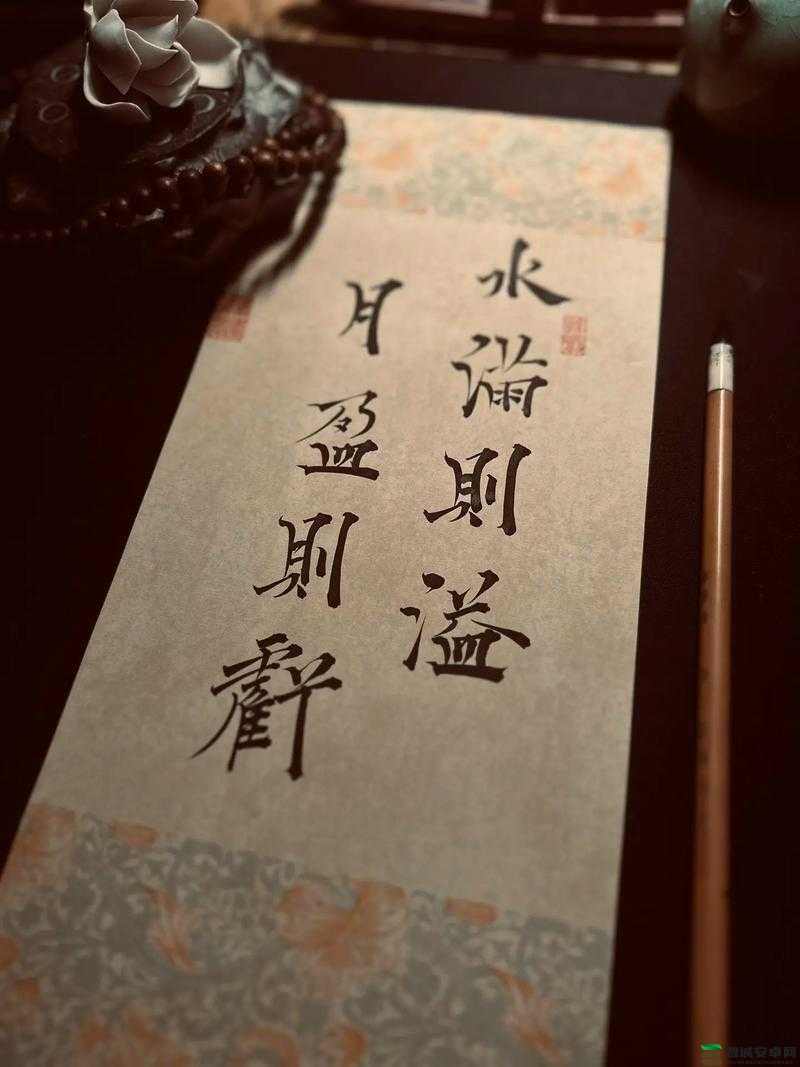 水滿則溢
月盈則虧
智诚安卓网